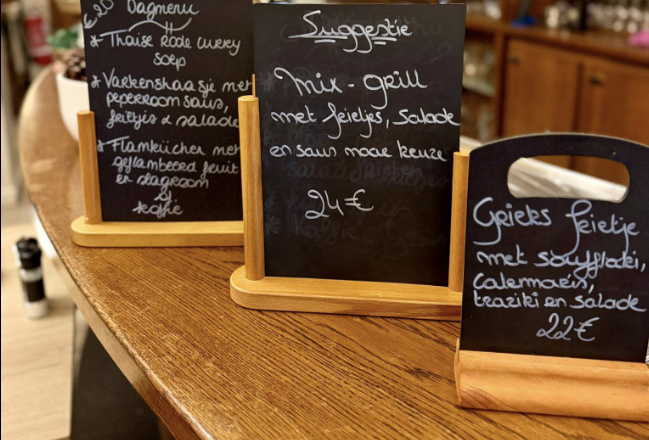 €20 Dagmenu
* Thaise Rode curry
soep
* Varkenshaasje met
peperroom saus,
frietjes & salade
* Flamküchen met
geflambeerd fruit
en slagroom
of
koffie
Suggestie
Mix-grill
met frietjes, salade
en saus naar keuze
24€
Grieks frietje
met souflaki,
calemares,
tzaziki en salade
22€